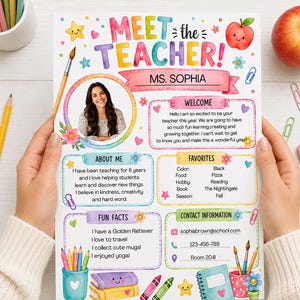 MEET the
TEACHER!
MS. SOPHIA
WELCOME
Hello I am so excited to be your
teacher this year. We are going to have
so much fun learning, creating and
growing together. I can't wait to get
to know you and make this a wonderful year
ABOUT ME
I have been teaching for 8 years
and I love helping students
learn and discover new things
I believe in kindness, creativity
and hard work.
FAVORITES
Color: Black
Food: Pizza
Hobby: Reading
Book: The Nightingale
Season: Fall
FUN FACTS
I have a Golden Retriever
I love to travel
I collect cute mugs!
I enjoyed yoga!
CONTACT INFORMATION
sophiabrown@school.com
123-456-789
Room 204!